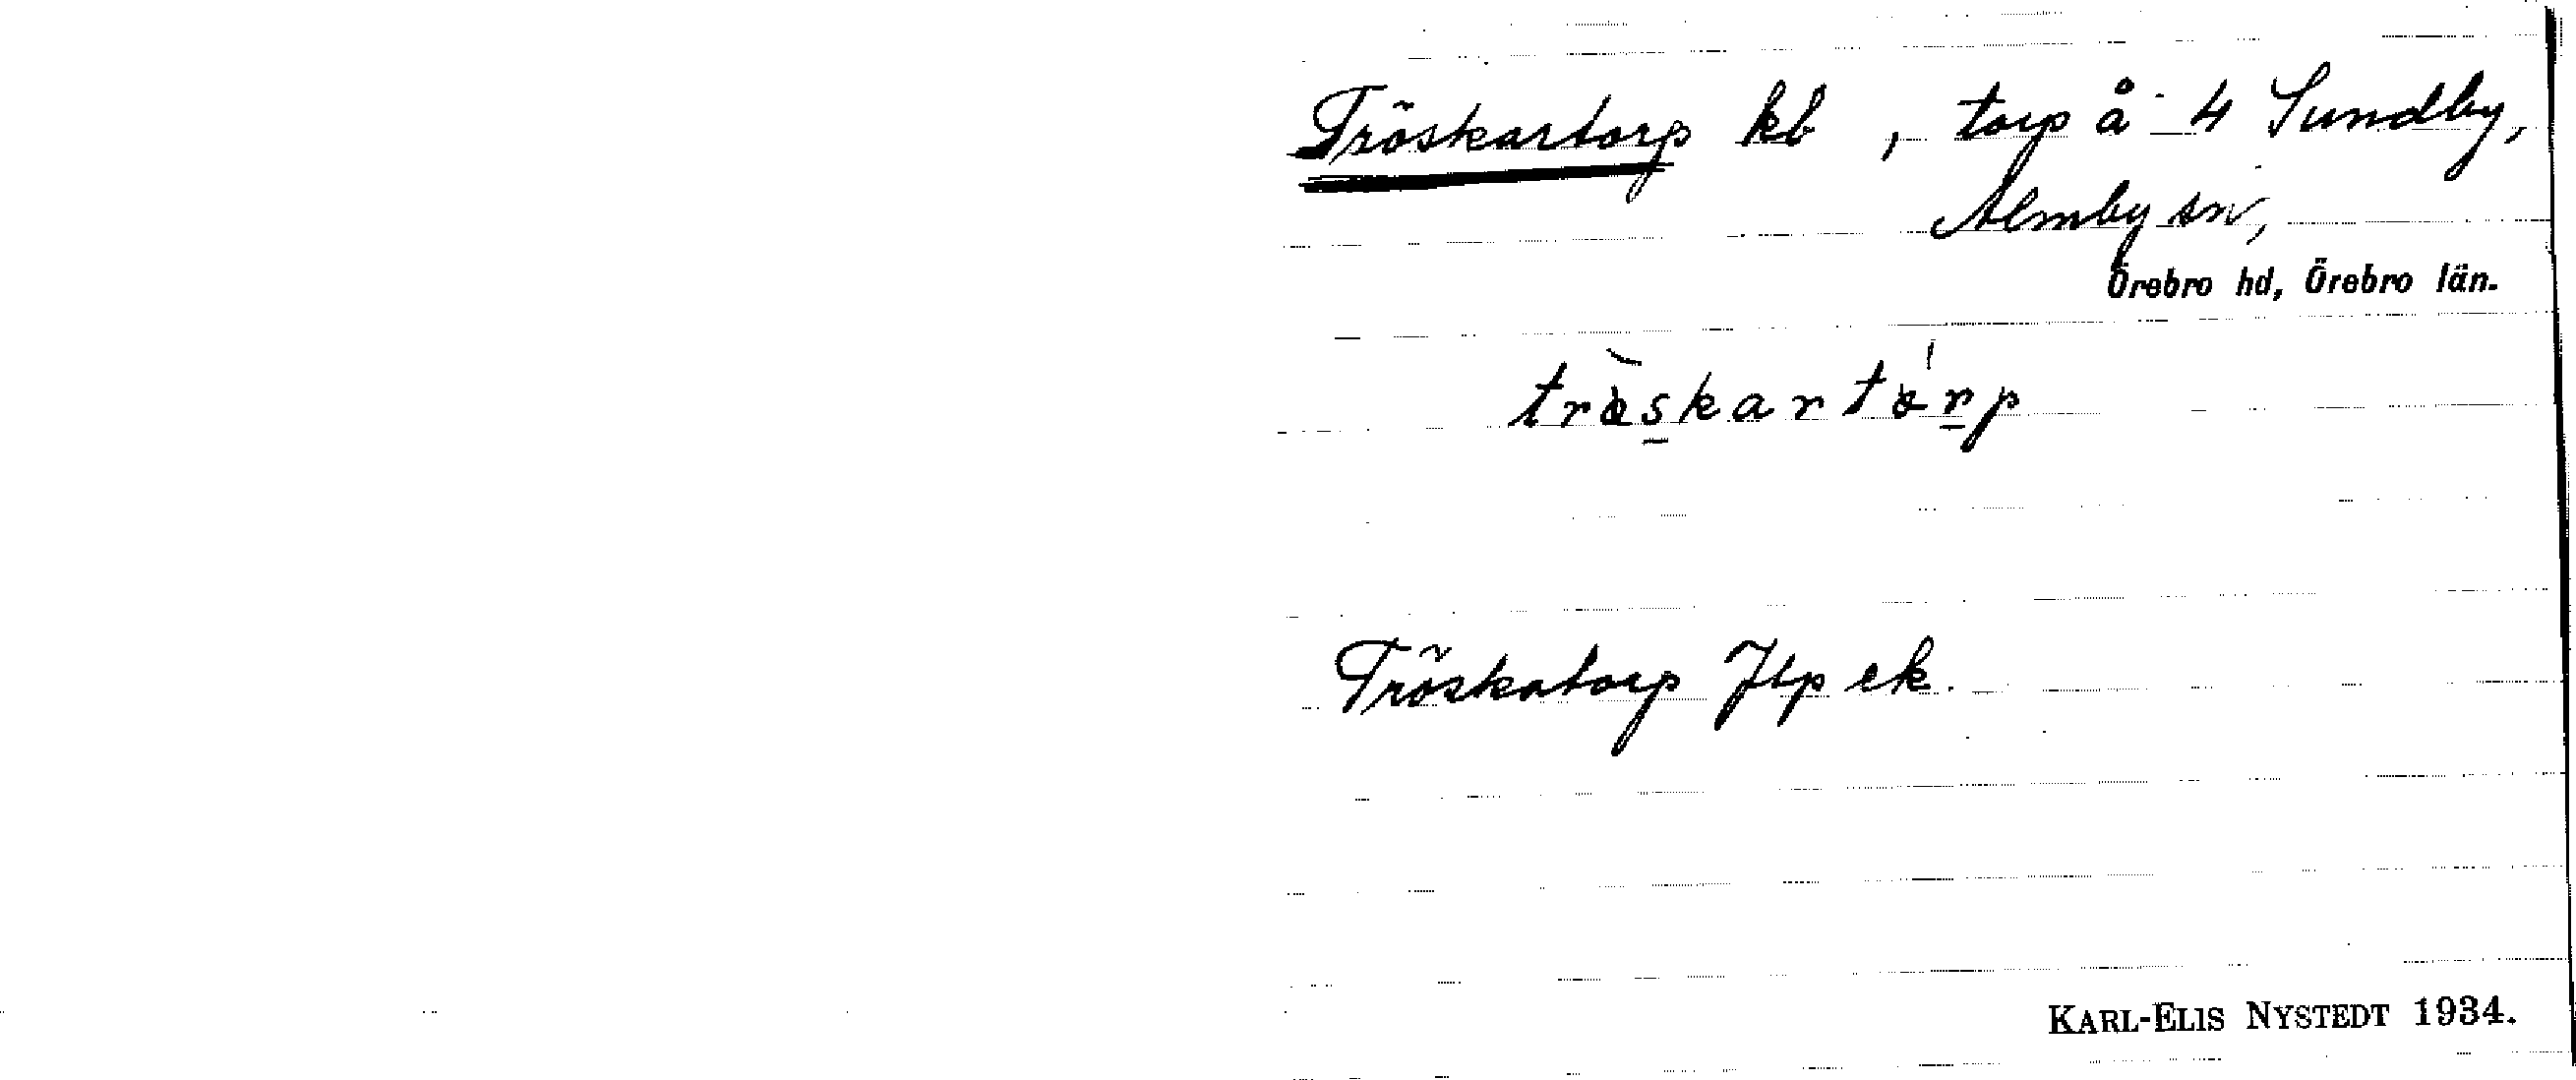 Tröskartorp kb , torp å 4 Sundby,
Almby sn,
Örebro hd, Örebro län.
tròskartórp
Tröskatorp Jtp ek.
KARL-ELIS NYSTEDT 1934.